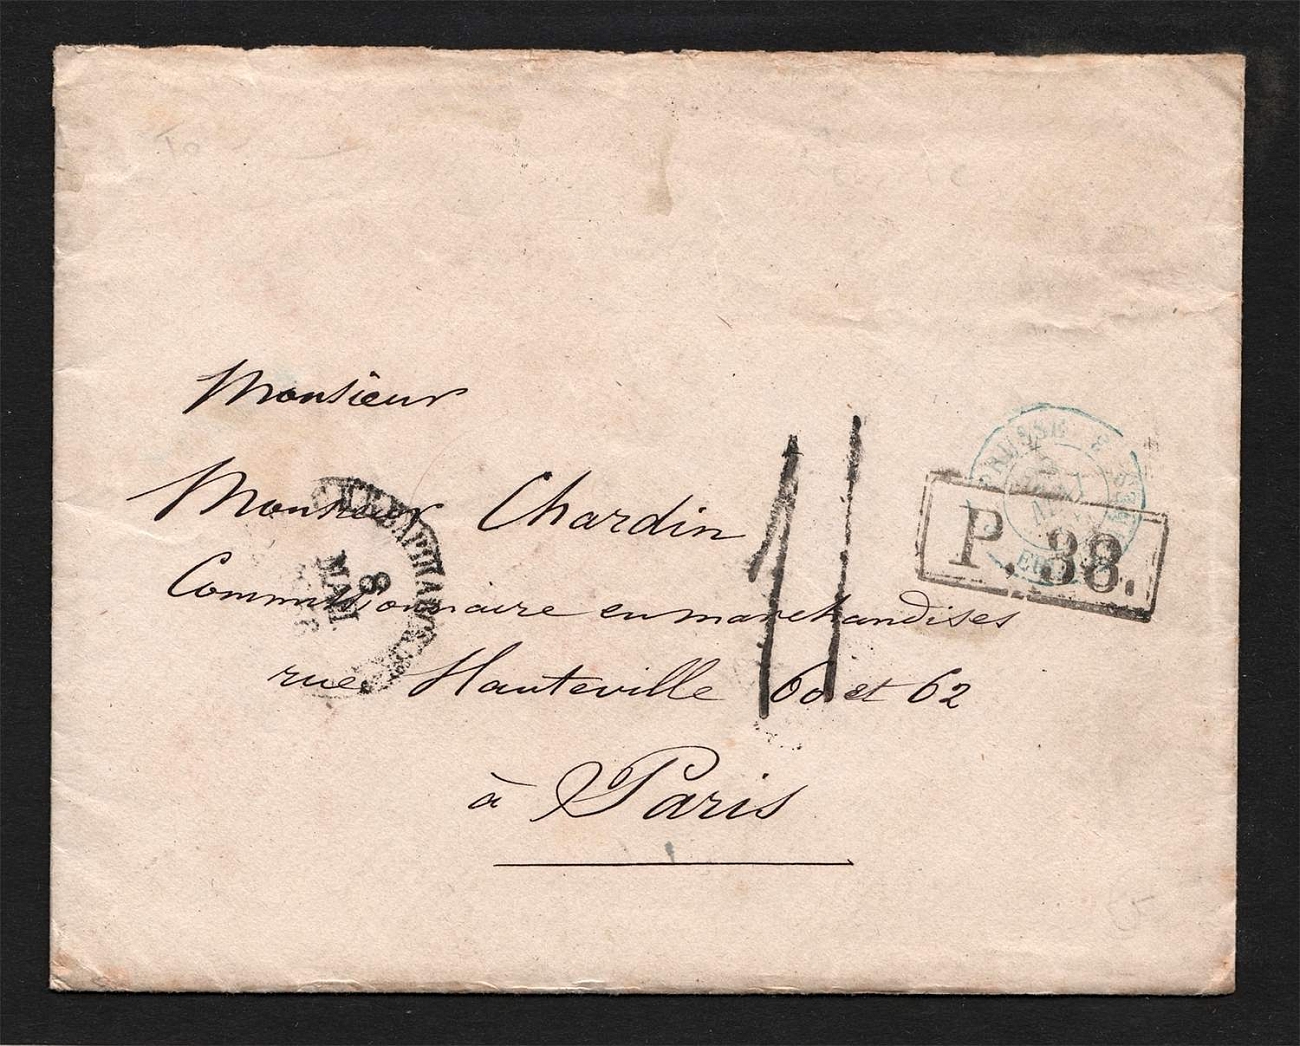 Monsieur
Monsieur Chardin
Commissionnaire en marchandises
rue Hauteville 60 et 62
à Paris
11
P. 38.
8
МАЙ
PRUSSE